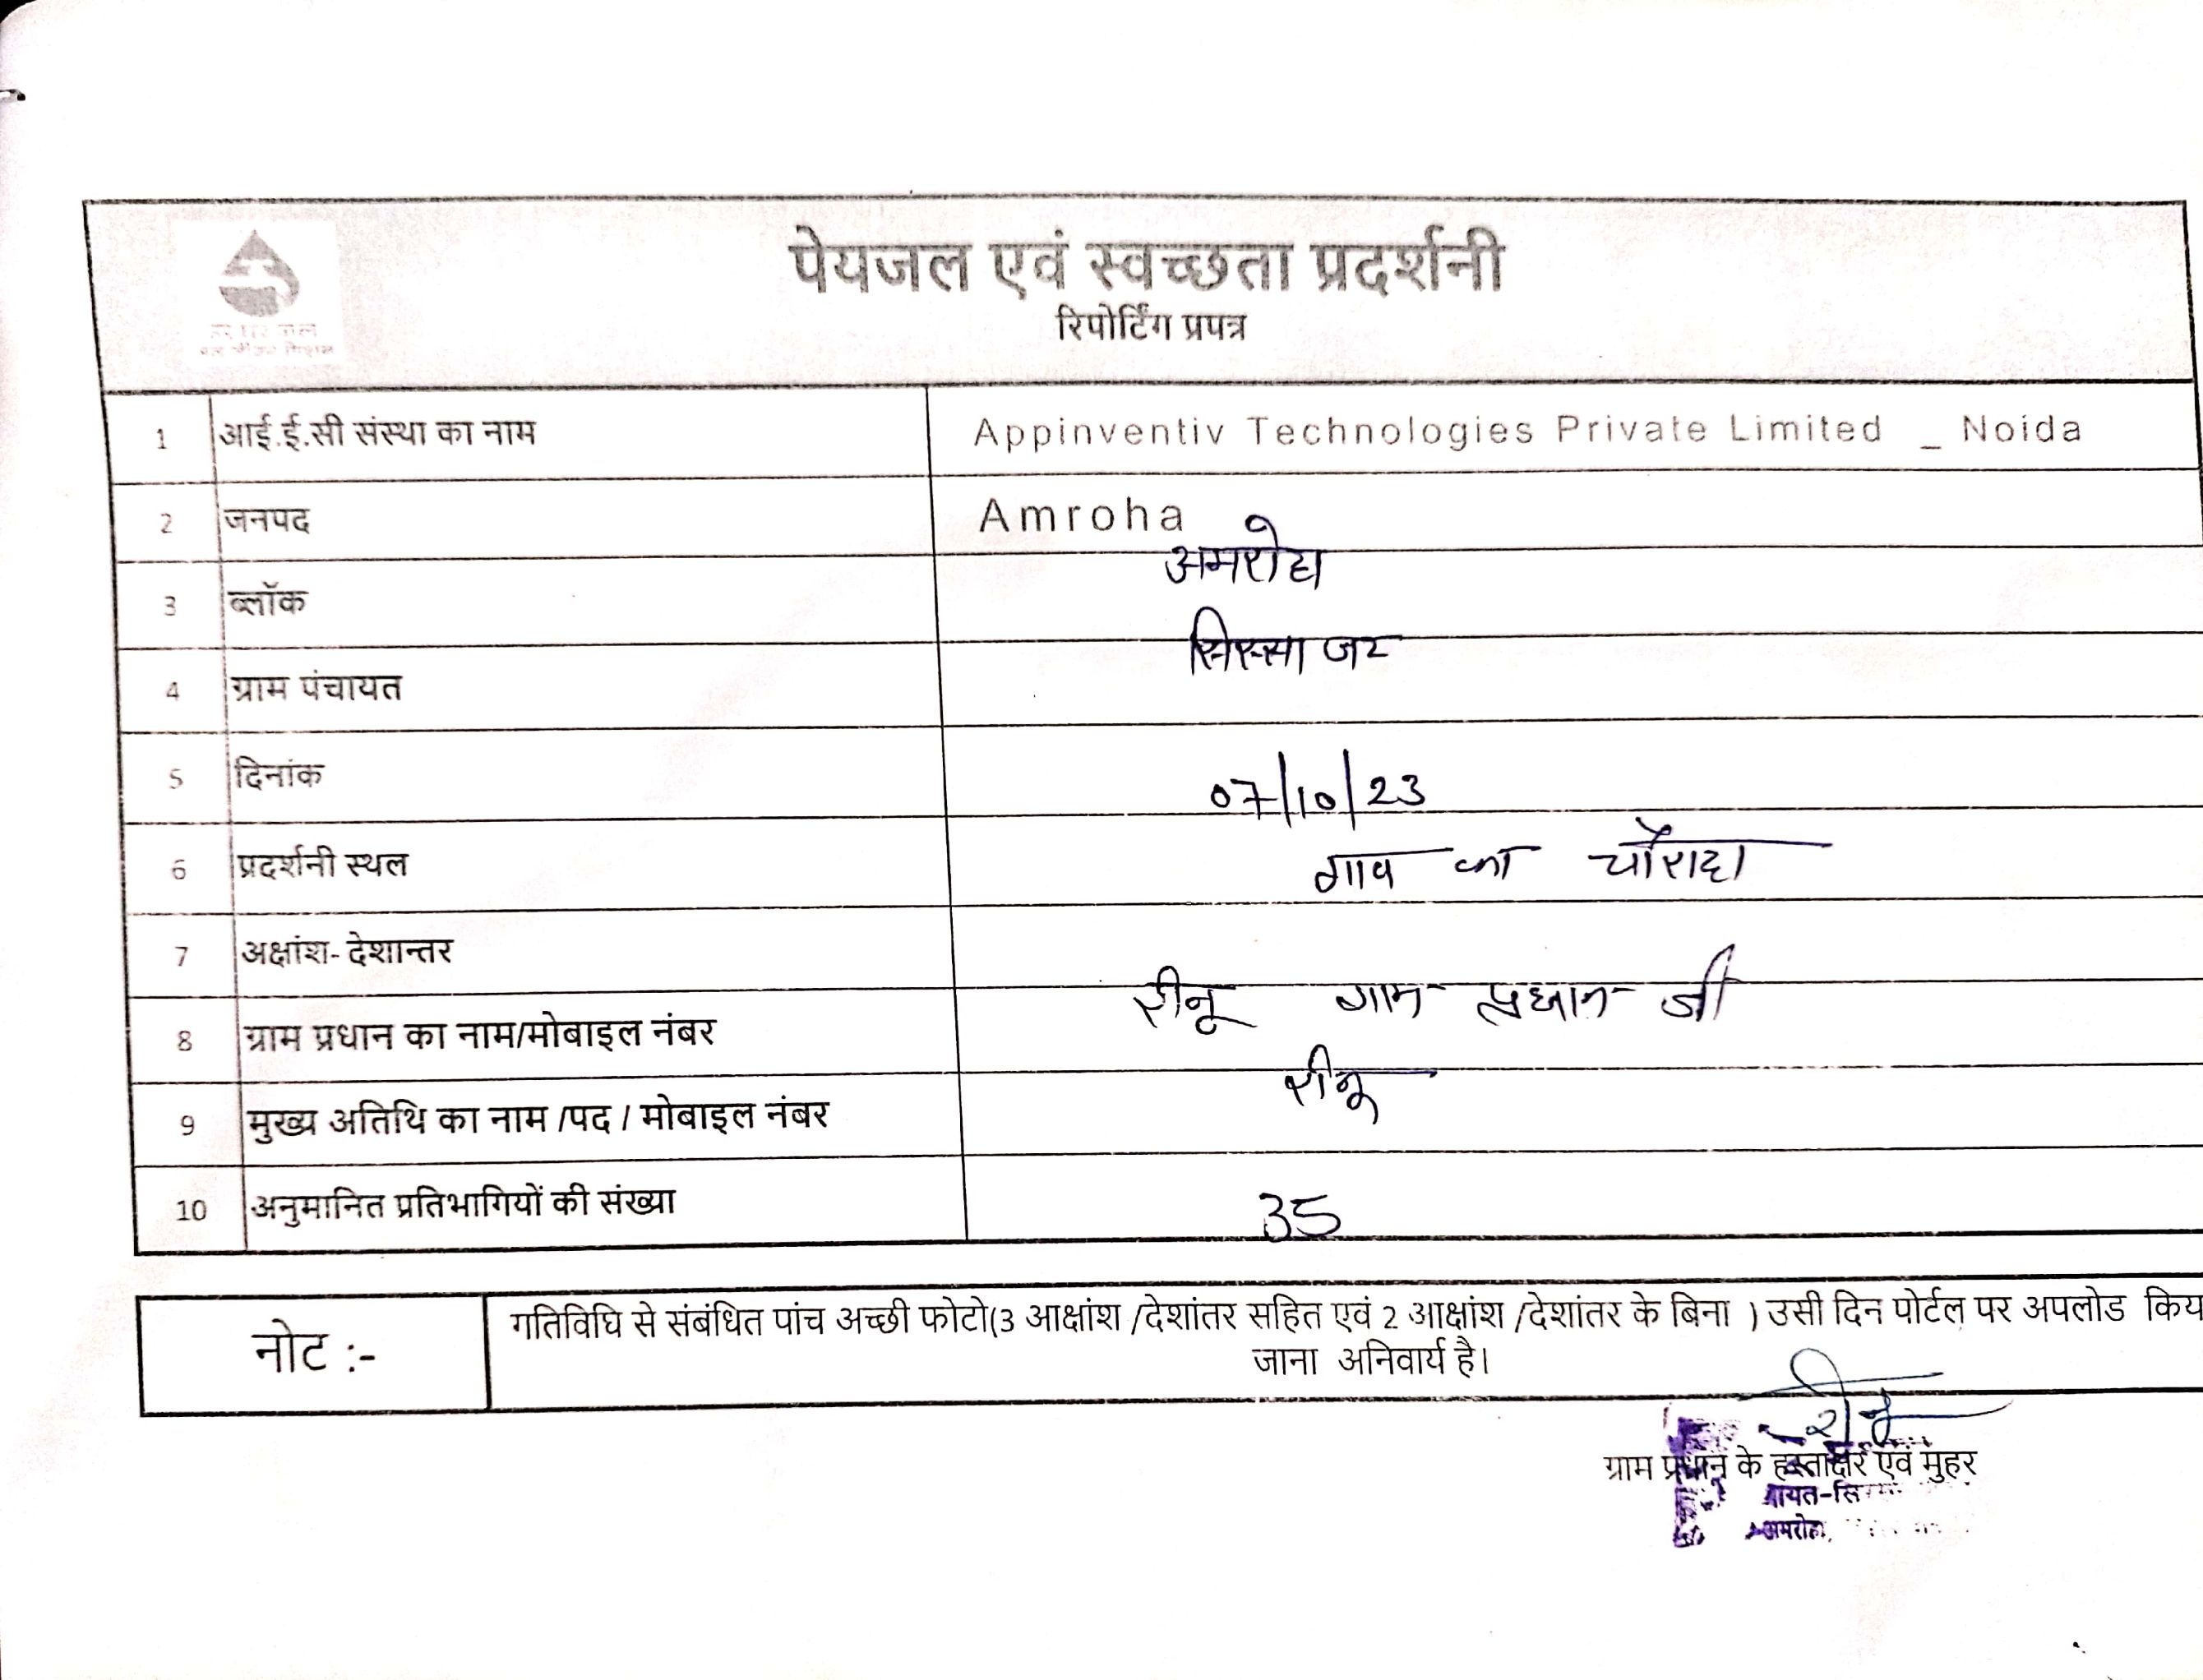 हर घर जल
जल जीवन मिशन
पेयजल एवं स्वच्छता प्रदर्शनी
रिपोर्टिंग प्रपत्र
1 आई.ई.सी संस्था का नाम Appinventiv Technologies Private Limited _ Noida
2 जनपद Amroha
3 ब्लॉक अमरोहा
4 ग्राम पंचायत सिरसा जट
5 दिनांक 07/10/23
6 प्रदर्शनी स्थल गाव का चौराहा
7 अक्षांश- देशान्तर
8 ग्राम प्रधान का नाम/मोबाइल नंबर रीनू गाम प्रधान जी
9 मुख्य अतिथि का नाम /पद / मोबाइल नंबर रीनू
10 अनुमानित प्रतिभागियों की संख्या 35
नोट :- गतिविधि से संबंधित पांच अच्छी फोटो(3 आक्षांश /देशांतर सहित एवं 2 आक्षांश /देशांतर के बिना ) उसी दिन पोर्टल पर अपलोड किय
जाना अनिवार्य है।
रीनू
ग्राम प्रधान के हस्ताक्षर एवं मुहर
अमरोहा